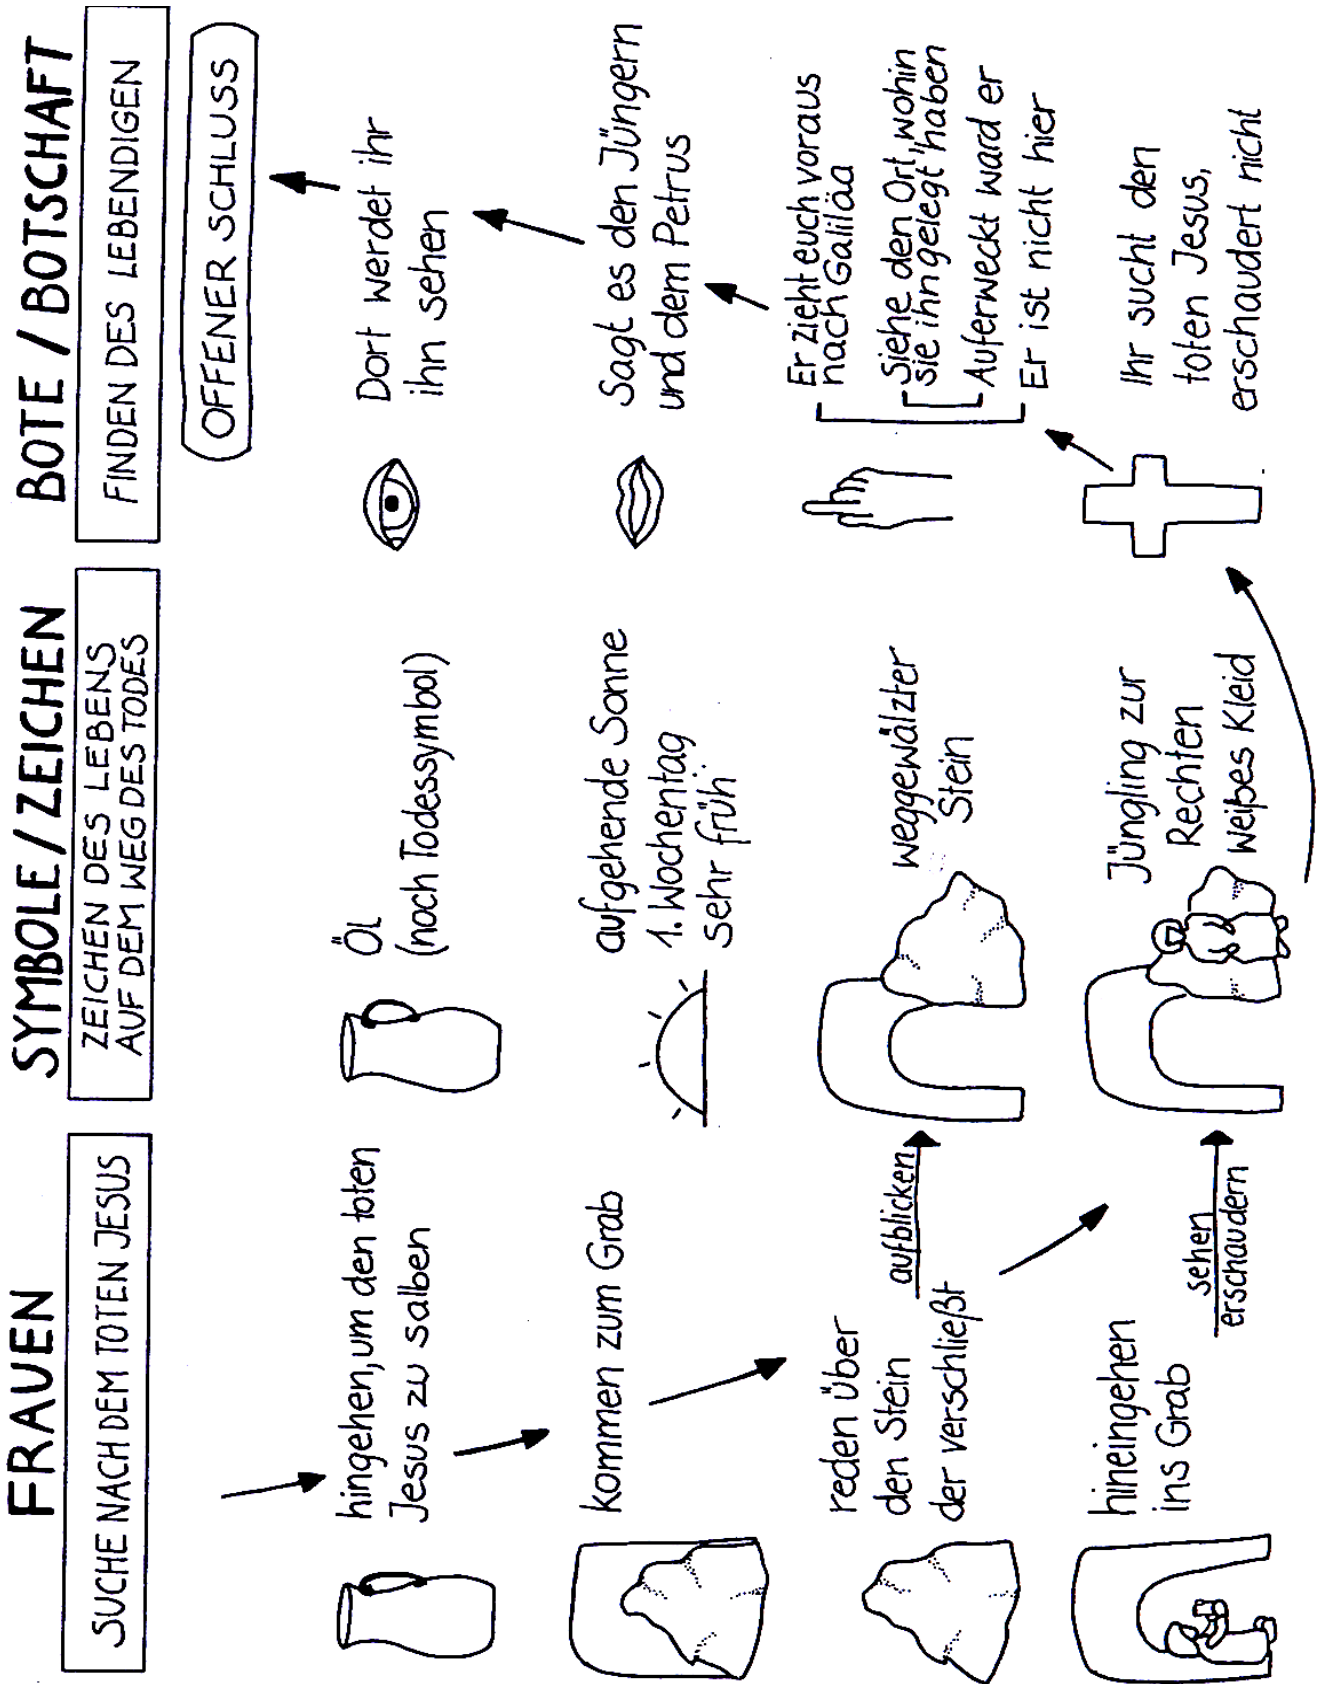 FRAUEN
SUCHE NACH DEM TOTEN JESUS
hingehen, um den toten
Jesus zu salben
kommen zum Grab
reden über
den Stein
der verschließt
aufblicken
hineingehen
ins Grab
sehen
erschaudern
SYMBOLE/ZEICHEN
ZEICHEN DES LEBENS
AUF DEM WEG DES TODES
Öl
(noch Todessymbol)
aufgehende Sonne
1. Wochentag
sehr früh
weggewälzter
Stein
Jüngling zur
Rechten
weißes Kleid
BOTE/BOTSCHAFT
FINDEN DES LEBENDIGEN
OFFENER SCHLUSS
Dort werdet ihr
ihn sehen
Sagt es den Jüngern
und dem Petrus
Er zieht euch voraus
nach Galiläa
Siehe den Ort, wohin
sie ihn gelegt haben
Auferweckt ward er
Er ist nicht hier
Ihr sucht den
toten Jesus,
erschaudert nicht